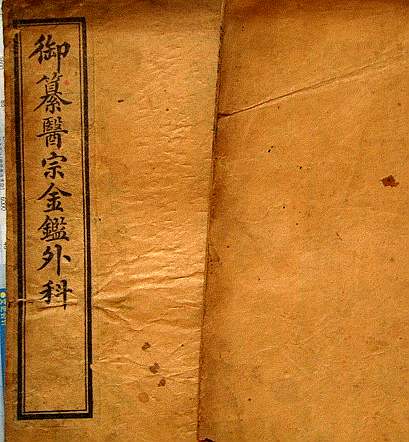 御纂醫宗金鑑外科